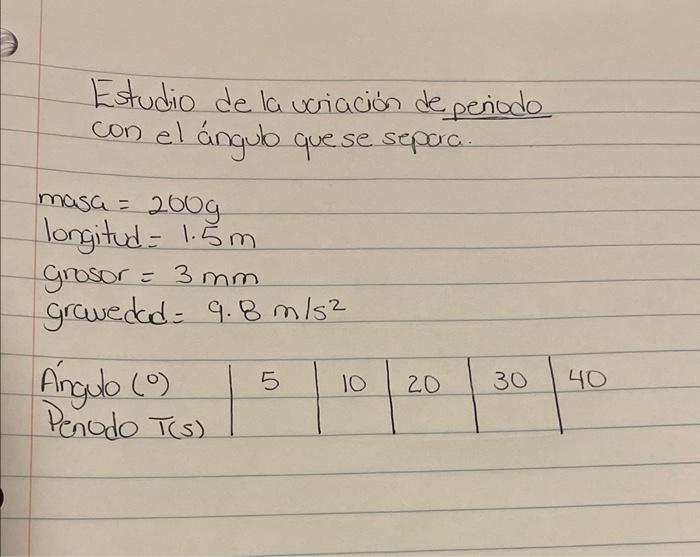 Estudio de la variación de periodo
con el ángulo que se separa.
masa = 200g
longitud = 1.5 m
grosor = 3 mm
gravedad = 9.8 m/s²
Ángulo (°) 5 10 20 30 40
Periodo T(s)